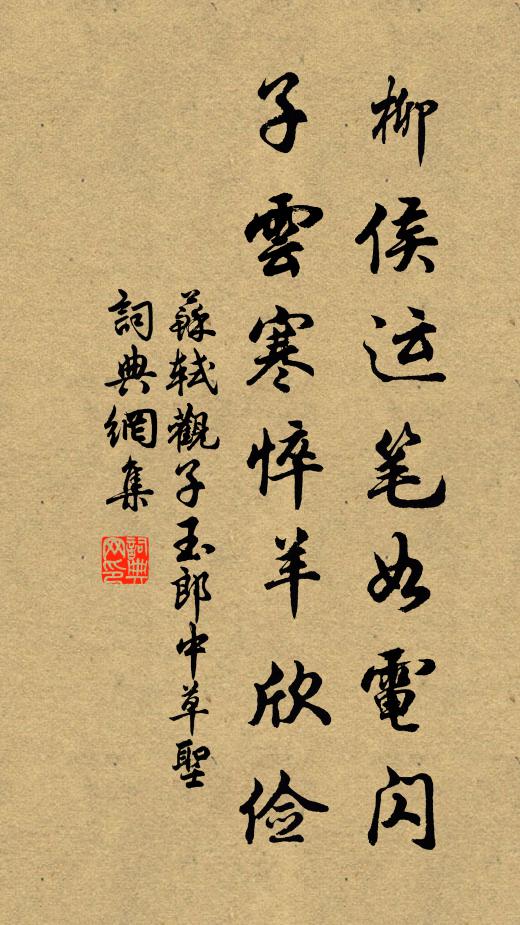 柳侯运笔如電闪
子雲寒悴羊欣俭
蘇轼觀子玉郎中草聖
詞典網集
詞典网印